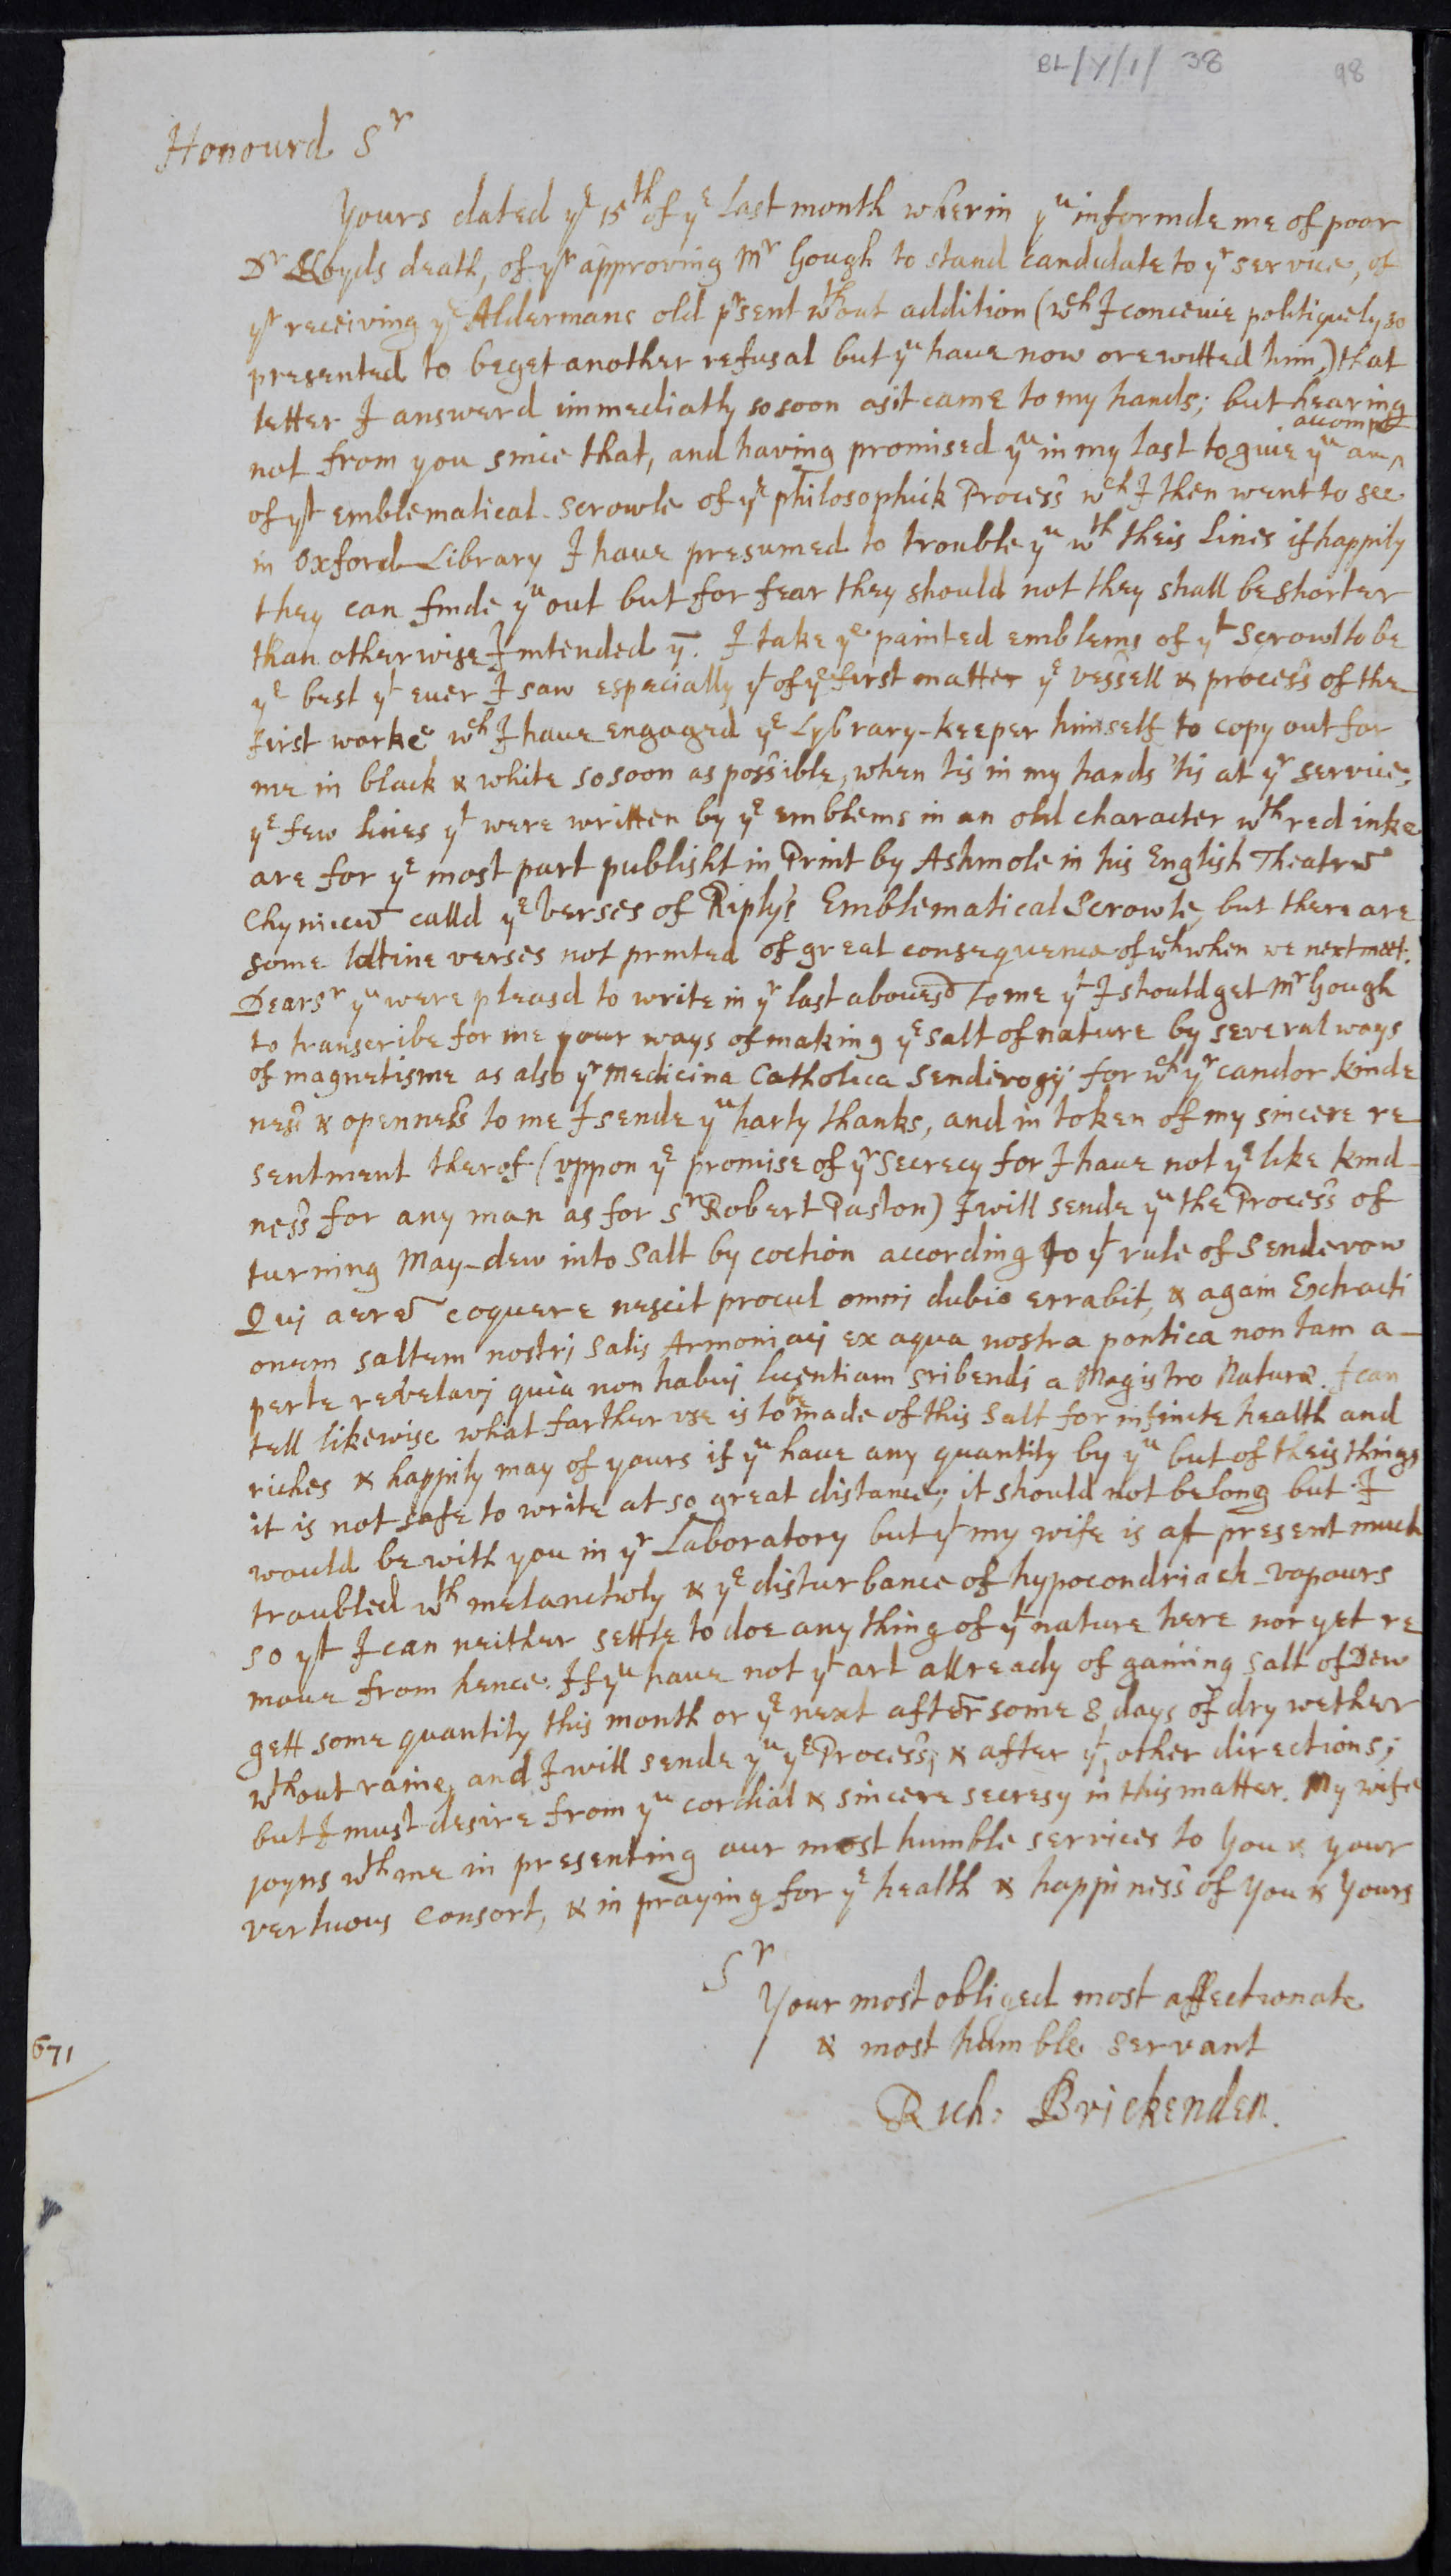 BL/Y/1/ 38
98
Honourd Sr
Yours dated ye 15th of ye last month wherin yu informde me of poor
Dr Lloyds death, of yr approving Mr Gough to stand candidate to yr service, of
yr receiving ye Aldermans old prsent wthout addition (wch I conceive politiquely so
presented to beget another refusal but yu have now orewitted him,) that
letter I answerd immediatly so soon as it came to my hands; but hearing
not from you since that, and having promised yu in my last to give yu an accompt
of yt emblematical scrowle of ye philosophick Process wch I then went to see
in Oxford Library I have presumed to trouble yu wth theis lines if happily
they can finde yu out but for fear they should not they shall be shorter
than otherwise I intended ym. I take ye painted emblems of yt Scrowl to be
ye best yt ever I saw especially yt of ye first matter ye vessell & process of the
first worke wch I have engaged ye Lybrary-keeper himself to copy out for
me in black & white so soon as possible, when tis in my hands 'tis at yr service,
ye few lines yt were written by ye emblems in an old character wth red inke
are for ye most part publisht in Print by Ashmole in his English Theatrū
Chymicū calld ye Verses of Riply's Emblematical Scrowle, but there are
some lattine verses not printed of great consequence of wch when we next meet.
Dear Sr yu were pleasd to write in yr last abovesd to me yt I should get Mr Gough
to transcribe for me your ways of making ye salt of nature by several ways
of magnetisme as also yr Medicina Catholica Sendivogij for wch yr candor kinde
ness & openness to me I sende yu harty thanks, and in token of my sincere re
sentment therof (uppon ye promise of yr secrecy for I have not ye like kind-
ness for any man as for Sr Robert Paston) I will sende yu the Process of
turning May-dew into Salt by coction according to yt rule of Sendevow
Quj aerē coquere nescit procul omnj dubio errabit, & again Extracti
onem saltem nostrj Salis Armoniacj ex aqua nostra pontica non tam a-
perte revelavj quia non habuj lucentiam sribendj a Magistro Naturæ. I can
tell likewise what farther use is to be made of this Salt for infinite health and
riches & happily may of yours if yu have any quantity by yu but of theis things
it is not safe to write at so great distance; it should not be long but I
would be with you in yr Laboratory but yt my wife is at present much
troubled wth melancholy & ye disturbance of hypocondriack-vapours
so yt I can neither settle to doe any thing of yt nature here nor yet re
move from hence. If yu have not yt art allready of gaining salt of Dew
gett some quantity this month or ye next after some 8 days of dry wether
wthout raine, and I will sende yu ye Process, & after yt, other directions;
but I must desire from yu cordial & sincere secresy in this matter. My wife
joyns wth me in presenting our most humble services to You & your
vertuous consort, & in praying for ye health & happiness of You & Yours
Sr
Your most obliged most affectionate
& most humble servant
Rich: Brickenden.
671